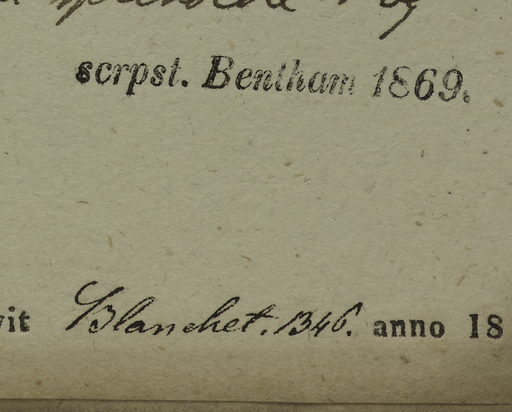 scrpst. Bentham 1869.
Blanchet. 1346. anno 18